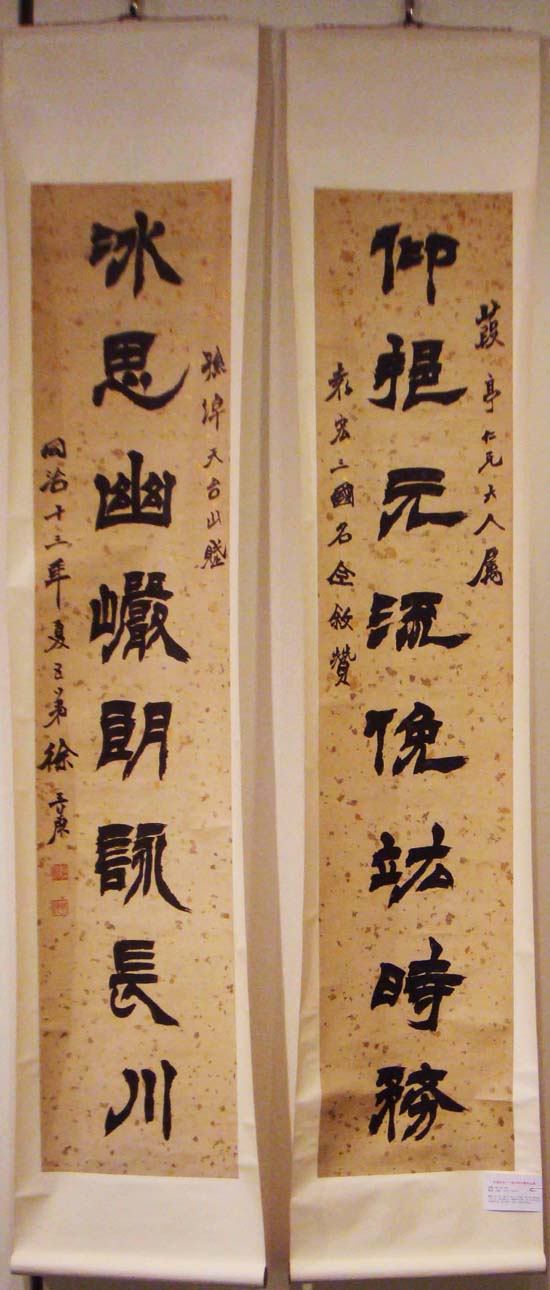 葭亭仁兄大人属
仰挹元流俛竑時務
袁宏三國名臣敘贊
孫綽天台山賦
冰思幽巗朗詠長川
同治十三年夏五弟徐三庚